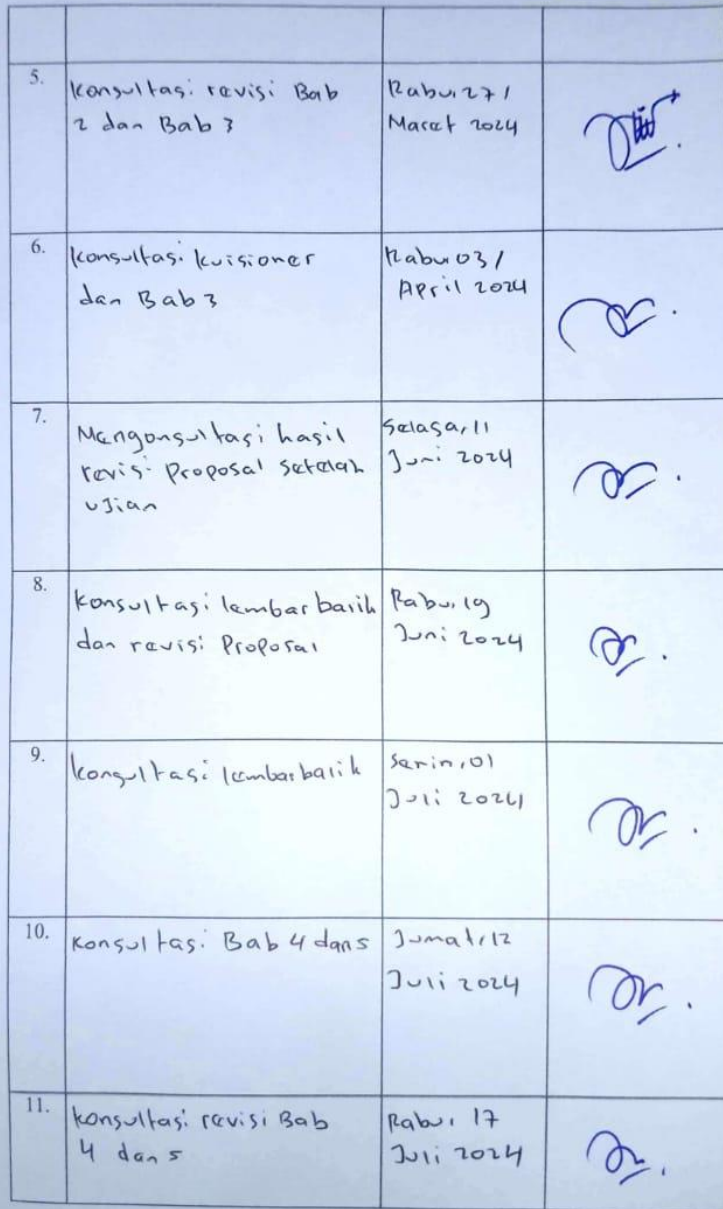 5.
Konsultasi revisi Bab
2 dan Bab 3
Rabu, 27 /
Maret 2024
6.
Konsultasi kuisioner
dan Bab 3
Rabu 03 /
April 2024
7.
Mengonsultasi hasil
revisi Proposal setelah
ujian
Selasa, 11
Juni 2024
8.
Konsultasi lembar balik
dan revisi Proposal
Rabu, 19
Juni 2024
9.
Konsultasi lembar balik
Senin, 01
Juli 2024
10.
Konsultasi Bab 4 dan 5
Jumat, 12
Juli 2024
11.
Konsultasi revisi Bab
4 dan 5
Rabu, 17
Juli 2024